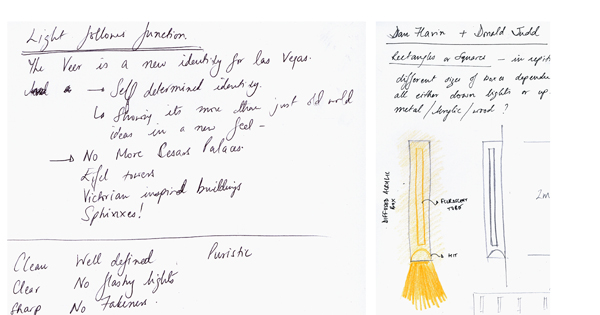 Light follows function
The Veer is a new identity for Las Vegas.
a → Self determined identity.
↳ Showing its more than just old world
ideas in a new feel –
→ No More Cesars Palaces
Eifel towers
Victorian inspired buildings
Sphinxes!
Clean Well defined Puristic
Clear No flashy lights
Sharp No Fakeness.
Dan Flavin + Donald Judd
Rectangles or Squares – in
different sizes of
all either down lights or up
metal/Acrylic/wood?
DIFFUSED ACRYLIC
BOX
FLUORESCENT
TUBE
HIT
2m